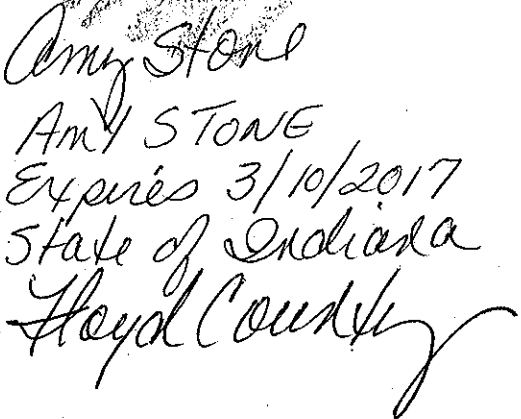 Amy Stone
AMY STONE
Expires 3/10/2017
State of Indiana
Floyd County